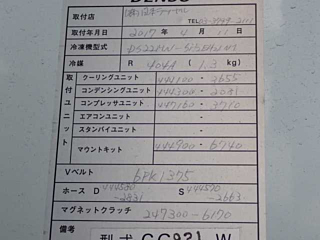 DENSO
取付店
取付年月日 2017 年 4 月 11 日
冷凍機型式
冷媒 R 404A (1.3 kg)
取付ユニット
クーリングユニット 444100-3655
コンデンシングユニット 444300-2081
コンプレッサユニット 447160-3710
エアコンユニット -
スタンバイユニット -
マウントキット 444900-6740
Vベルト 6PK1375
ホース D 444580-2831 S 444570-2663
マグネットクラッチ 247300-6170
備考 型式 GG921 W